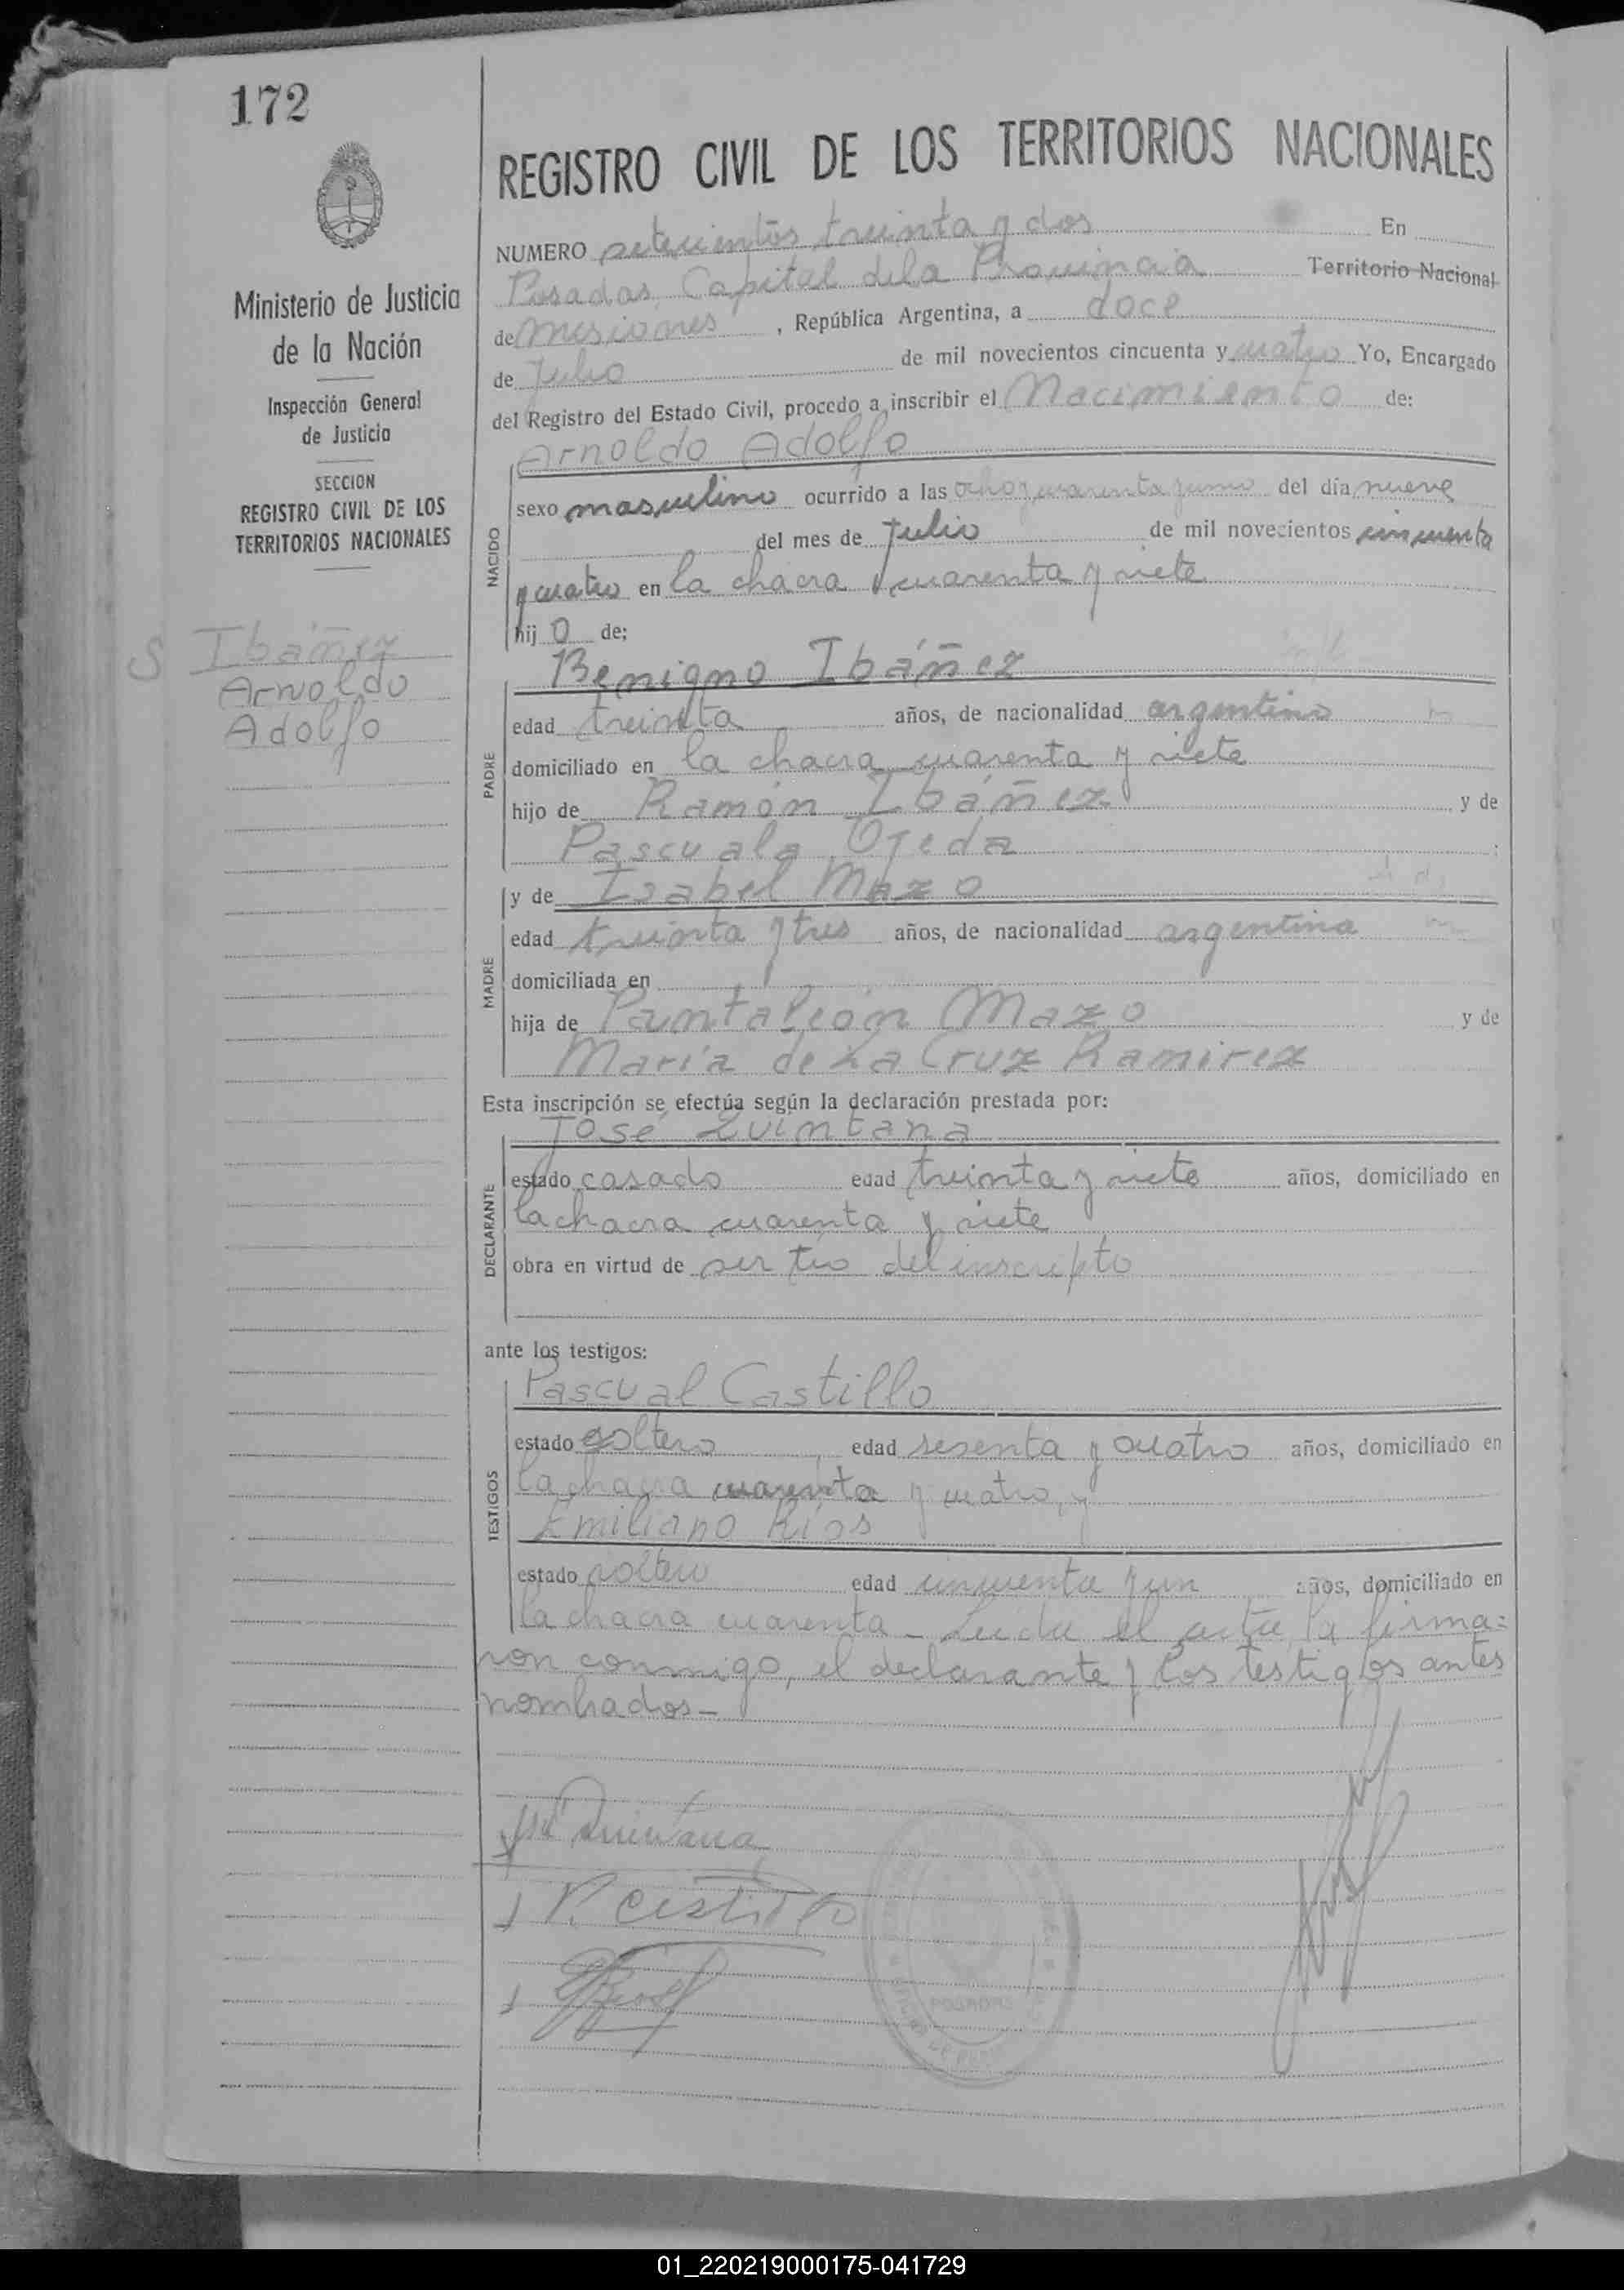 172
REGISTRO CIVIL DE LOS TERRITORIOS NACIONALES
Ministerio de Justicia
de la Nación
Inspección General
de Justicia
SECCION
REGISTRO CIVIL DE LOS
TERRITORIOS NACIONALES
S Ibáñez
Arnoldo
Adolfo
NUMERO setecientos treinta y dos En
Posadas, Capital de la Provincia Territorio Nacional
de Misiones, República Argentina, a doce
de Julio de mil novecientos cincuenta y cuatro Yo, Encargado
del Registro del Estado Civil, procedo a inscribir el Nacimiento de:
Arnoldo Adolfo
NACIDO
sexo masculino ocurrido a las ocho y cuarenta y cinco del día nueve
del mes de Julio de mil novecientos cincuenta
y cuatro en la chacra cuarenta y siete
hij o de:
Benigno Ibáñez
PADRE
edad treinta años, de nacionalidad argentino
domiciliado en la chacra cuarenta y siete
hijo de Ramón Ibáñez y de
Pascuala Ojeda
y de Isabel Mazo
MADRE
edad treinta y tres años, de nacionalidad argentina
domiciliada en
hija de Pantaleón Mazo y de
María de La Cruz Ramirez
Esta inscripción se efectúa según la declaración prestada por:
José Quintana
DECLARANTE
estado casado edad treinta y siete años, domiciliado en
la chacra cuarenta y siete
obra en virtud de ser tio del inscripto
ante los testigos:
Pascual Castillo
TESTIGOS
estado soltero edad sesenta y cuatro años, domiciliado en
la chacra cuarenta y cuatro, y
Emiliano Ríos
estado soltero edad cincuenta y un años, domiciliado en
la chacra cuarenta - Leida el acta, la firma=
ron conmigo, el declarante y los testigos antes
nombrados-
José Quintana
P. Castillo
ERíos
POSADAS
01_220219000175-041729